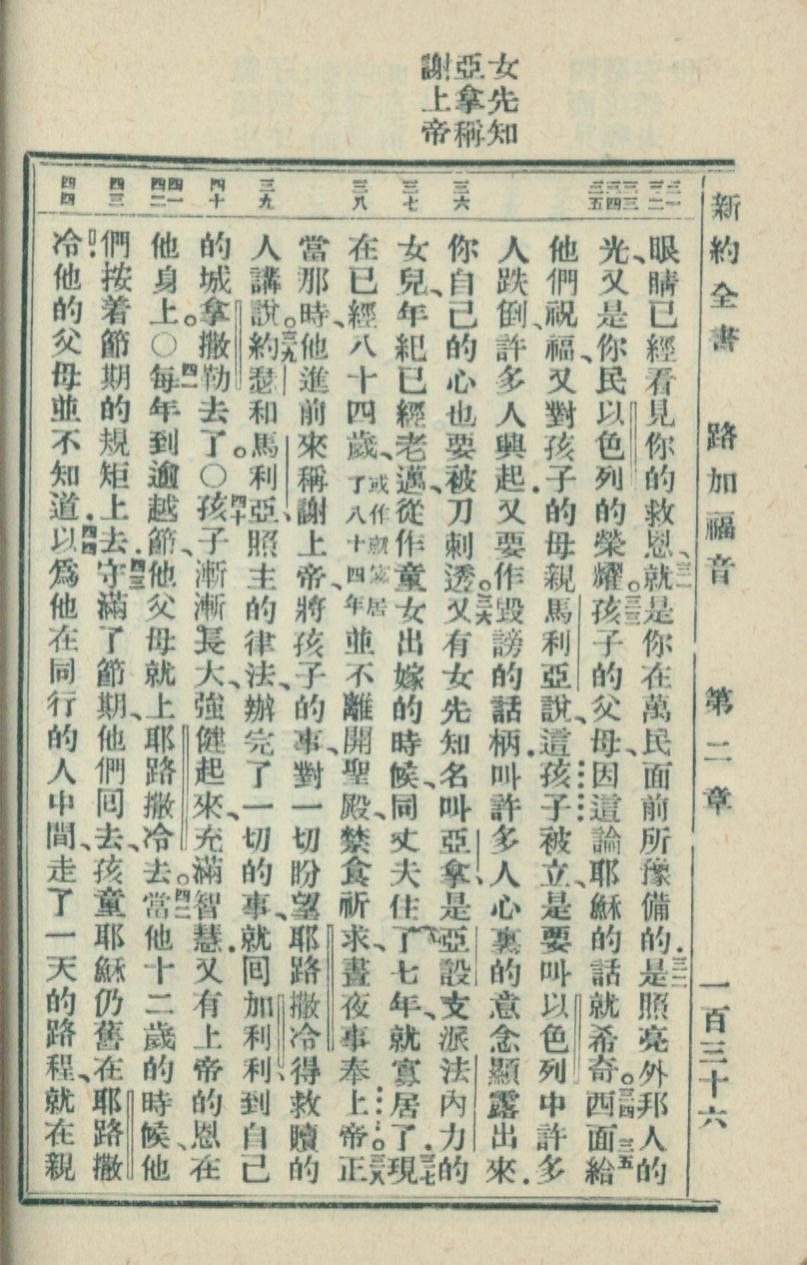 新約全書 路加福音 第二章 一百三十六
女先知
亞拿稱
謝上帝
三一
三二
三三
三四
三五
三六
三七
三八
三九
四十
四一
四二
四三
四四
眼睛已經看見你的救恩、三一就是你在萬民面前所豫備的．三二是照亮外邦人的
光、又是你民以色列的榮耀。三三孩子的父母、因這論耶穌的話就希奇。三四西面給三五
他們祝福、又對孩子的母親馬利亞說、這孩子被立、是要叫以色列中許多
人跌倒、許多人興起．又要作毀謗的話柄．叫許多人心裏的意念顯露出來．
你自己的心也要被刀刺透。三六又有女先知名叫亞拿、是亞設支派法內力的
女兒、年紀已經老邁、從作童女出嫁的時候、同丈夫住了七年、就寡居了．三七現
在已經八十四歲、或作就寡居了八十四年並不離開聖殿、禁食祈求、晝夜事奉上帝。三八正
當那時、他進前來稱謝上帝、將孩子的事、對一切盼望耶路撒冷得救贖的
人講說。三九約瑟和馬利亞、照主的律法、辦完了一切的事、就回加利利、到自己
的城拿撒勒去了。○四十孩子漸漸長大、強健起來、充滿智慧．又有上帝的恩在
他身上。○四一每年到逾越節、他父母就上耶路撒冷去。四二當他十二歲的時候、他
們按着節期的規矩上去．四三守滿了節期、他們回去、孩童耶穌仍舊在耶路撒
冷．他的父母並不知道．四四以爲他在同行的人中間、走了一天的路程、就在親